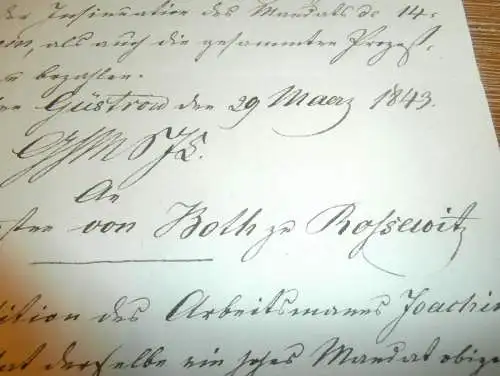 der Insinuation des Mandats de 14.
als auch die gesammten Prozess-
zu bezahlen.
Güstrow den 29 Maerz 1843.
An
von Both zu Rossewitz
des Arbeitsmannes Joachim
hat derselbe ein hohes Mandat obige